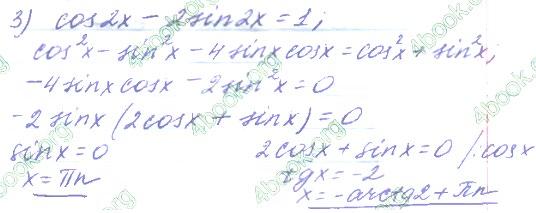 3) cos2x - 2sin2x = 1;
cos²x - sin²x - 4sinxcosx = cos²x + sin²x;
-4sinxcosx - 2sin²x = 0
-2sinx(2cosx + sinx) = 0
sinx = 0 2cosx + sinx = 0 /:cosx
x = πn tgx = -2
x = -arctg2 + πn
4book.org